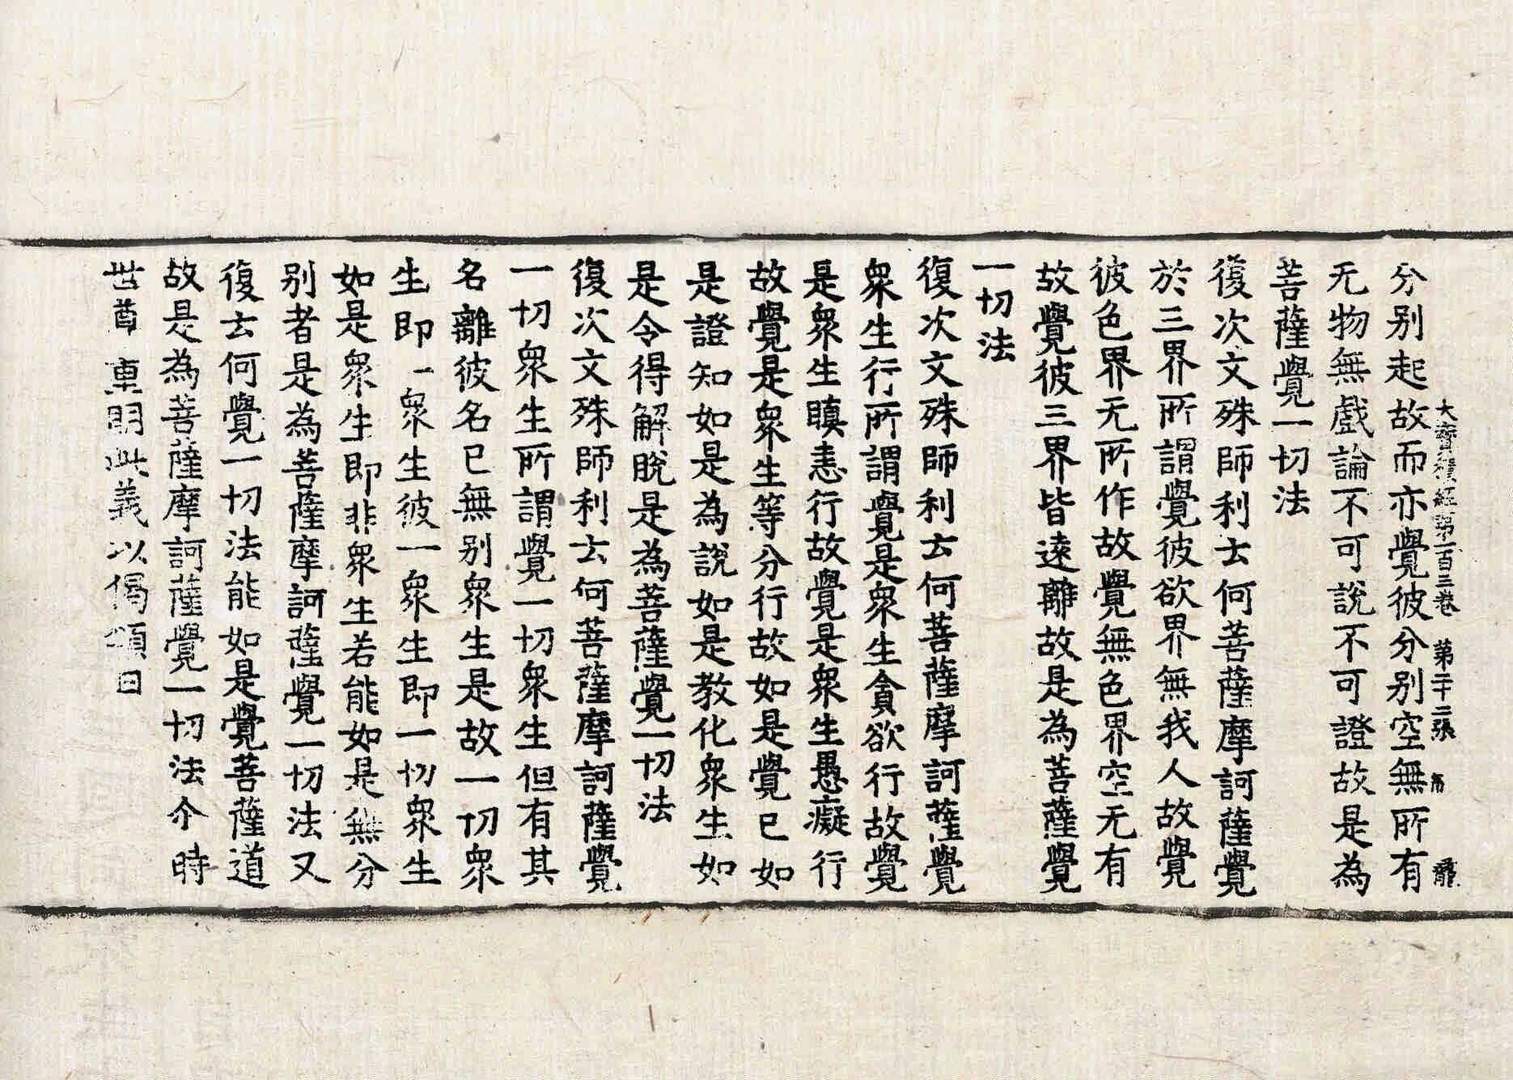 大寶積經第一百三卷 第二十二張 帝 龍
分別起故而亦覺彼分別空無所有
无物無戲論不可說不可證故是為
菩薩覺一切法
復次文殊師利云何菩薩摩訶薩覺
於三界所謂覺彼欲界無我人故覺
彼色界无所作故覺無色界空无有
故覺彼三界皆遠離故是為菩薩覺
一切法
復次文殊師利云何菩薩摩訶薩覺
衆生行所謂覺是衆生貪欲行故覺
是衆生瞋恚行故覺是衆生愚癡行
故覺是衆生等分行故如是覺已如
是證知如是為說如是教化衆生如
是令得解脫是為菩薩覺一切法
復次文殊師利云何菩薩摩訶薩覺
一切衆生所謂覺一切衆生但有其
名離彼名已無別衆生是故一切衆
生即一衆生彼一衆生即一切衆生
如是衆生即非衆生若能如是無分
別者是為菩薩摩訶薩覺一切法又
復云何覺一切法能如是覺菩薩道
故是為菩薩摩訶薩覺一切法尒時
世尊重明此義以偈頌曰